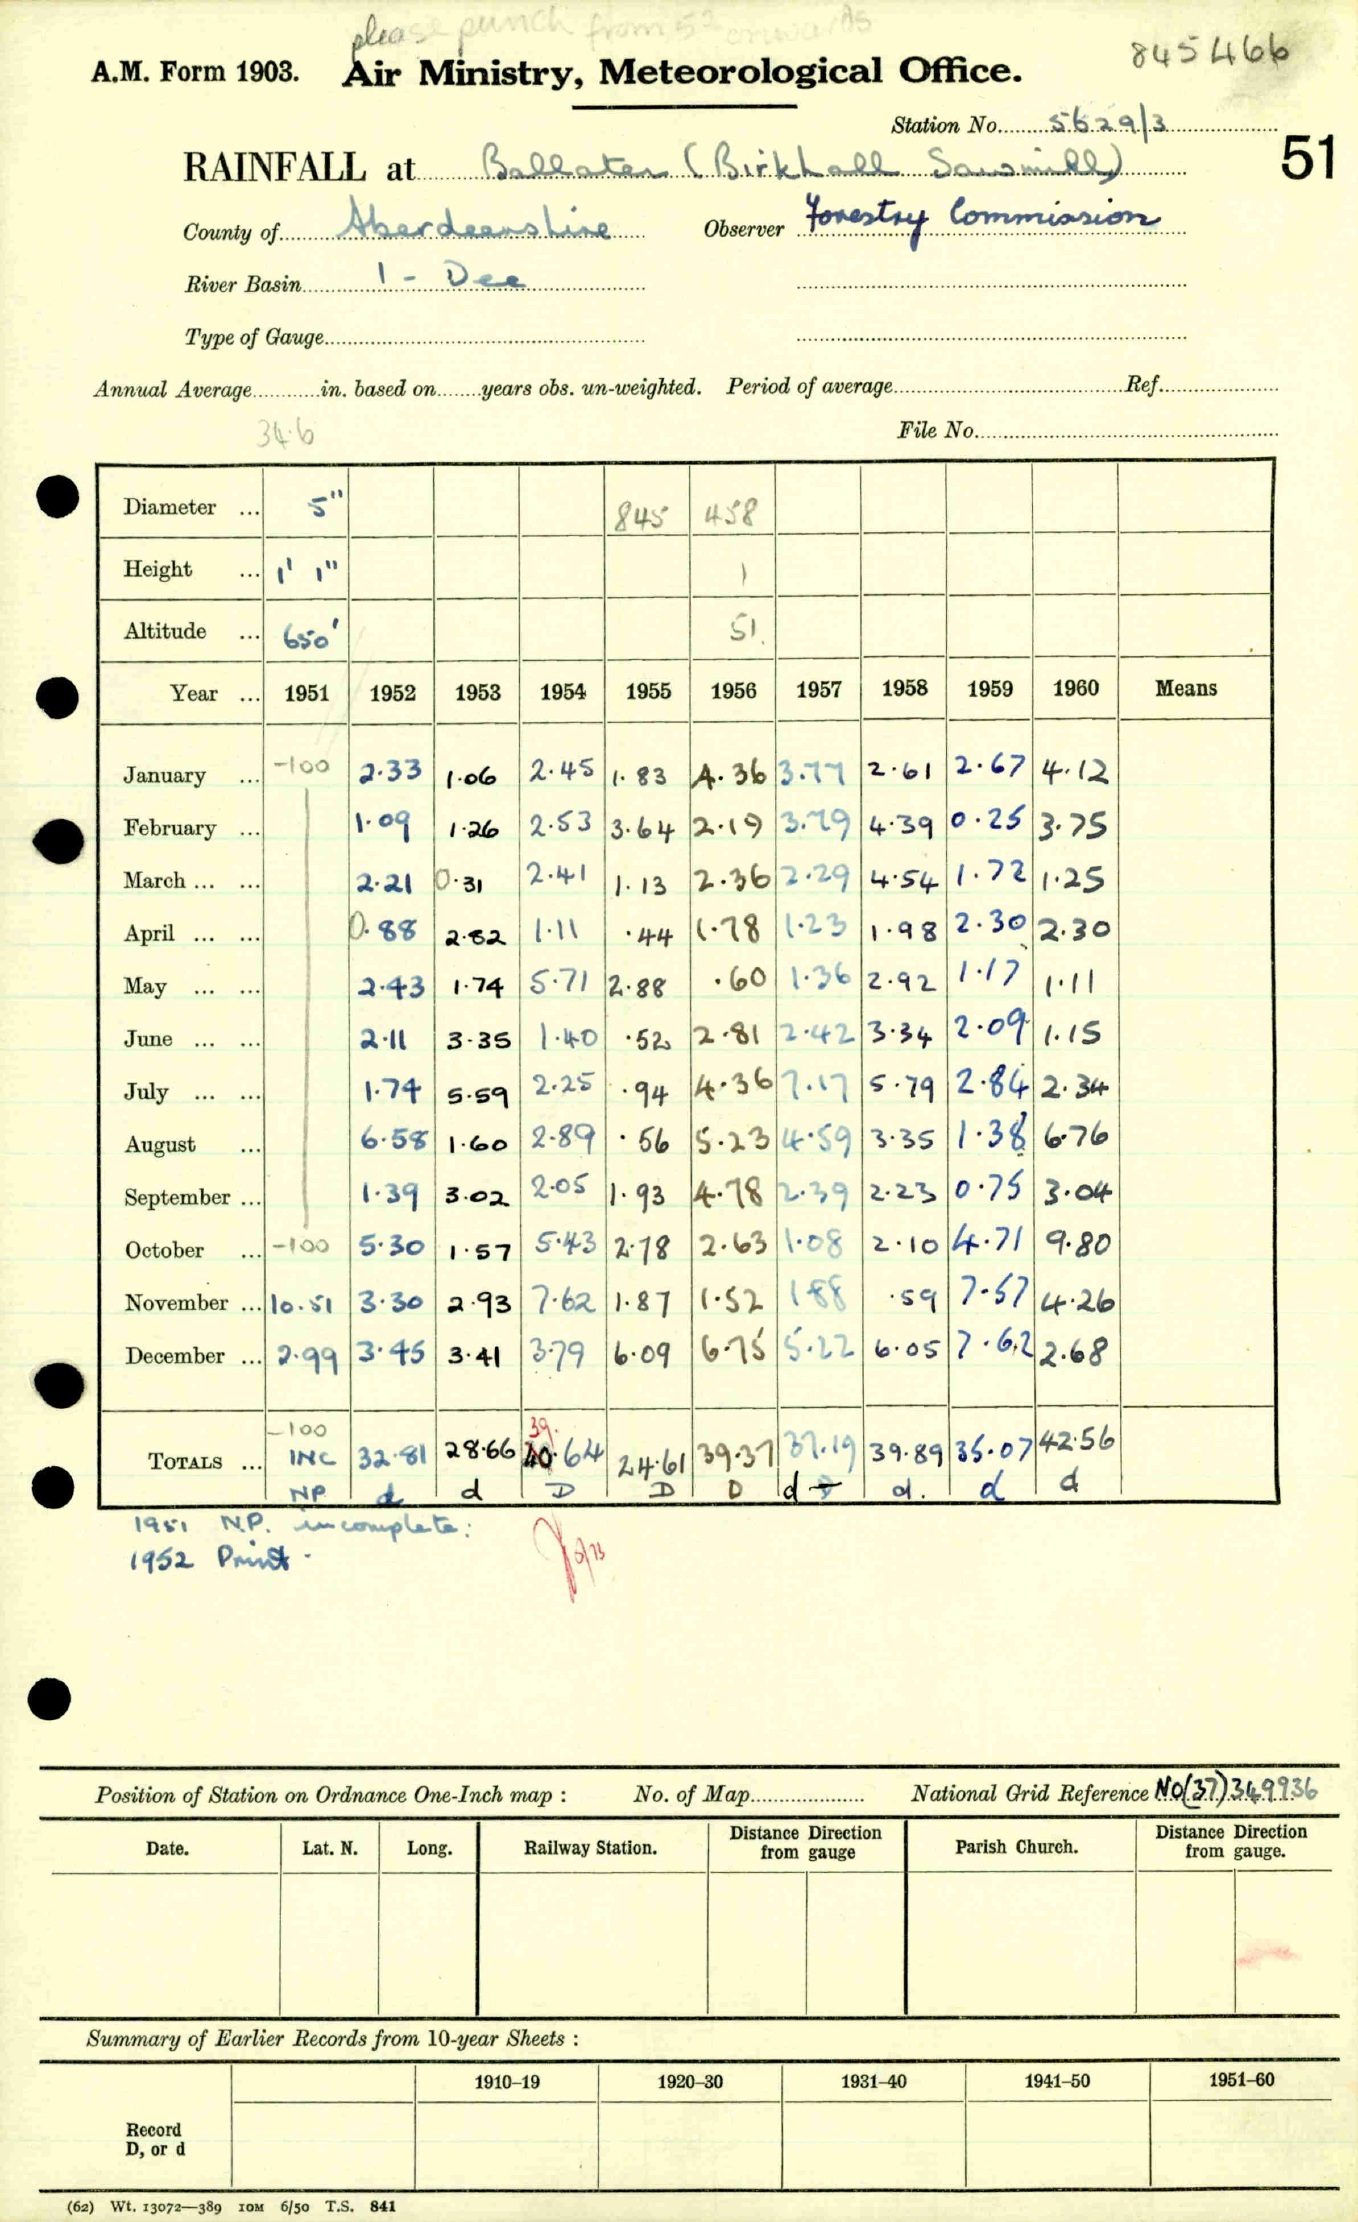 please punch from 52 onwards
845466
A.M. Form 1903. Air Ministry, Meteorological Office.
Station No. 5629/3
51
RAINFALL at Ballater (Birkhall Sawmill)
County of Aberdeenshire Observer Forestry Commission
River Basin 1 - Dee
Type of Gauge
Annual Average in. based on years obs. un-weighted. Period of average Ref.
34.6
File No.
Diameter ... 5" 845 458
Height ... 1' 1" 1
Altitude ... 650' 51.
Year ... 1951 1952 1953 1954 1955 1956 1957 1958 1959 1960 Means
January ... -100 2.33 1.06 2.45 1.83 4.36 3.77 2.61 2.67 4.12
February ... 1.09 1.26 2.53 3.64 2.19 3.79 4.39 0.25 3.75
March ... ... 2.21 0.31 2.41 1.13 2.36 2.29 4.54 1.72 1.25
April ... ... 0.88 2.82 1.11 .44 1.78 1.23 1.98 2.30 2.30
May ... ... 2.43 1.74 5.71 2.88 .60 1.36 2.92 1.17 1.11
June ... ... 2.11 3.35 1.40 .52 2.81 2.42 3.34 2.09 1.15
July ... ... 1.74 5.59 2.25 .94 4.36 7.17 5.79 2.84 2.34
August ... 6.58 1.60 2.89 .56 5.23 4.59 3.35 1.38 6.76
September ... 1.39 3.02 2.05 1.93 4.78 2.39 2.23 0.75 3.04
October ... -100 5.30 1.57 5.43 2.78 2.63 1.08 2.10 4.71 9.80
November ... 10.51 3.30 2.93 7.62 1.87 1.52 1.88 .59 7.57 4.26
December ... 2.99 3.45 3.41 3.79 6.09 6.75 5.22 6.05 7.62 2.68
-100 39.
TOTALS ... INC 32.81 28.66 40.64 24.61 39.37 37.19 39.89 35.07 42.56
NP d d D D D d D d. d d
1951 N.P. incomplete:
1952 Print.
6/73
Position of Station on Ordnance One-Inch map : No. of Map National Grid Reference NO(37)349936
Date. Lat. N. Long. Railway Station. Distance from Direction gauge Parish Church. Distance from Direction gauge.
Summary of Earlier Records from 10-year Sheets :
1910–19 1920–30 1931–40 1941–50 1951–60
Record
D, or d
(62) Wt. 13072—389 10M 6/50 T.S. 841